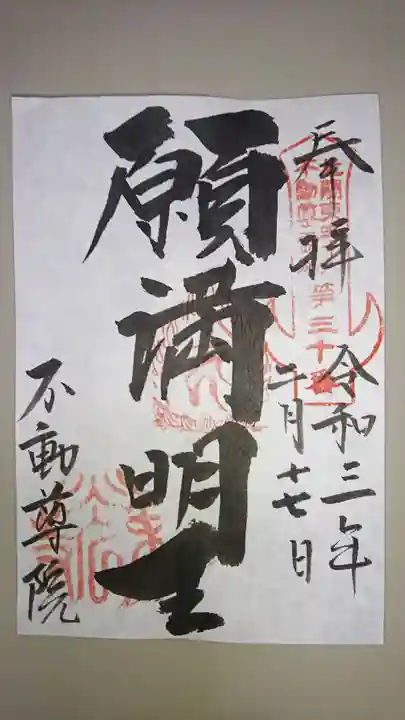 奉拝
令和三年
二月十七日
第三十番
願満明王
不動尊院